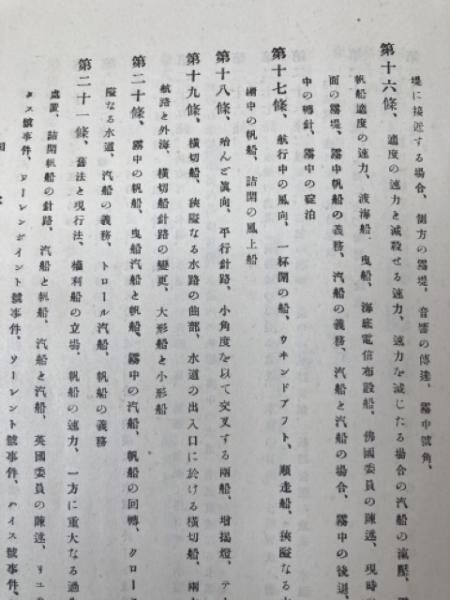 堤に接近する場合、側方の霧堤、音響の傳達、霧中號角、
第十六條、適度の速力と減殺せる速力、速力を減じたる場合の汽船の滊壓、
帆船適度の速力、渡海船、曳船、海底電信布設船、佛國委員の陳述、現時
面の霧堤、霧中帆船の義務、汽船の義務、汽船と汽船の場合、霧中の後退、
中の轉針、霧中の碇泊
第十七條、航行中の風向、一杯開の船、ウヰンドアフト、順走船、狹隘なる
中の帆船、詰開の風上船
第十八條、殆んど眞向、平行針路、小角度を以て交叉する兩船、增揭燈、
第十九條、橫切船、狹隘なる水路の曲部、水道の出入口に於ける橫切船、兩
航路と外海、橫切船針路の變更、大形船と小形船
第二十條、霧中の帆船、曳船汽船と帆船、霧中の汽船、帆船の回轉、クロース
隘なる水道、汽船の義務、トロール汽船、帆船の義務
第二十一條、舊法と現行法、權利船の立場、帆船の速力、一方に重大なる過
處置、詰開帆船の針路、汽船と帆船、汽船と汽船、英國委員の陳述、
タス號事件、ソーレント號事件、ハイス號事件、